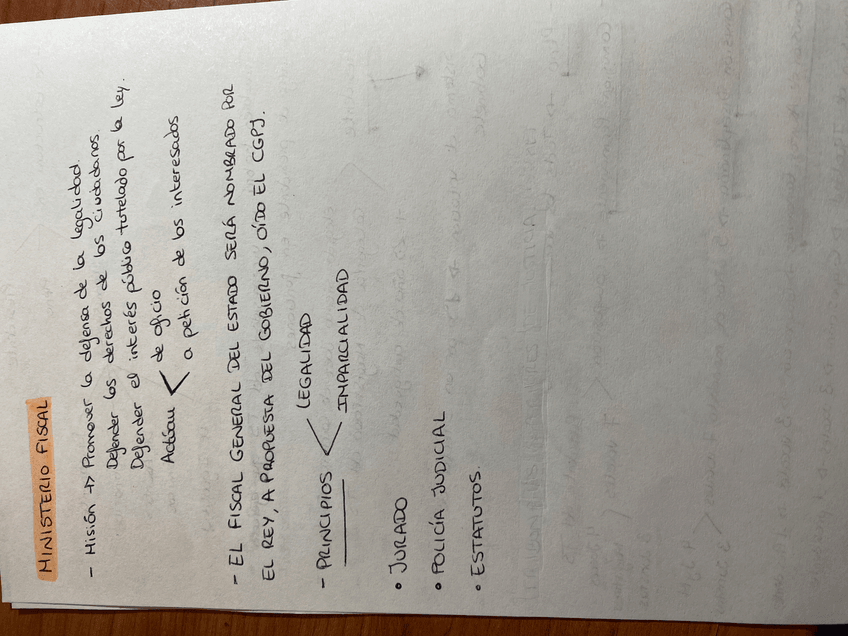 MINISTERIO FISCAL
- Misión → Promover la defensa de la legalidad.
Defender los derechos de los ciudadanos.
Defender el interés público tutelado por la ley.
Actúan < de oficio
a petición de los interesados
- EL FISCAL GENERAL DEL ESTADO SERÁ NOMBRADO POR
EL REY, A PROPUESTA DEL GOBIERNO, OÍDO EL CGPJ.
- PRINCIPIOS < LEGALIDAD
IMPARCIALIDAD
• JURADO
• POLICÍA JUDICIAL
• ESTATUTOS.